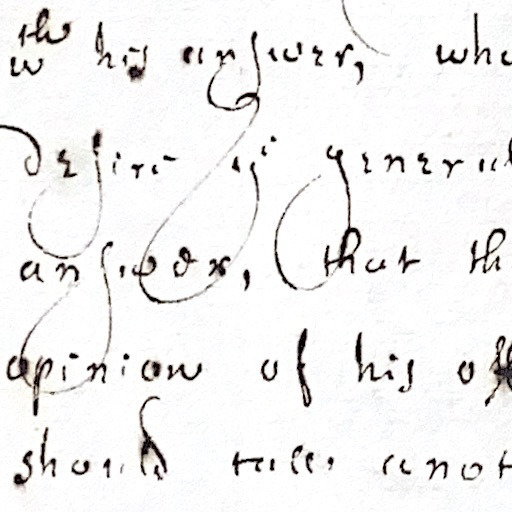 wth his answer, who
desire ys general
answer, that th
opinion of his off
should take anot